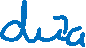 duża